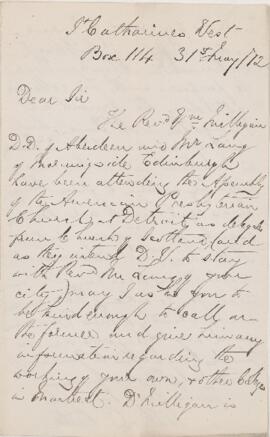 St Catharines West
Box 114 31st May /72
Dear Sir
The Revd Wm Milligan
D.D. of Aberdeen and Mr Lang
of Morningside Edinburgh
have been attending the Assembly
of the American Presbyterian
Church at Detroit as delegates
from Church of Scotland, and
as they intend D.V. to stay
with Revd Mr of your
city, may I ask you to
be kind enough to call on
the former and give him any
information regarding the
working of your own, & other Colleges
in Montreal. Dr Milligan is